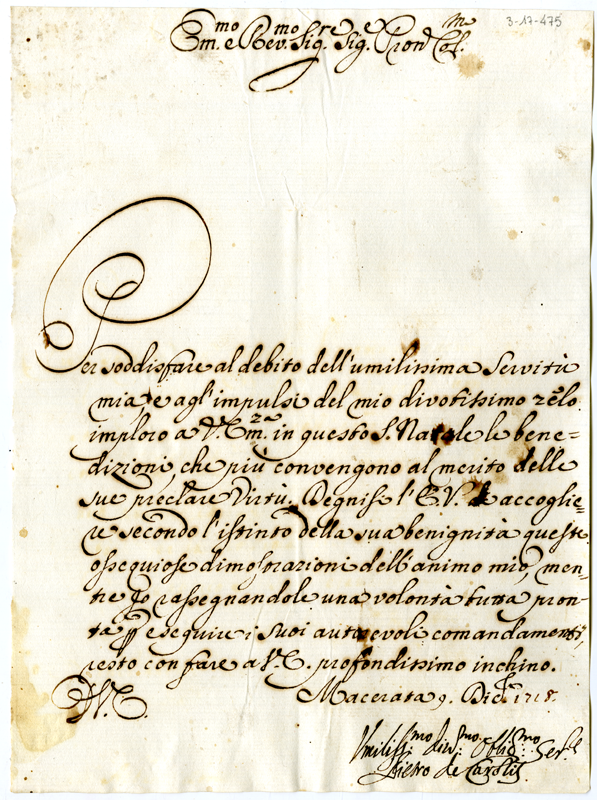 3-17-475
Em.mo e Rev.mo Sig.re Sig.e Pron Col.mo
Per soddisfare al debito dell'umilissima Servitù
mia e agl'impulsi del mio divotissimo zelo
imploro a V. Em.za in questo S. Natale le bene=
dizioni, che più convengono al merito delle
sue preclare Virtù. Degnisi l'E.V. accoglie=
re secondo l'istinto della sua benignità queste
ossequiose dimostrazioni dell'animo mio, men=
tre Io rassegnandole una volontà tutta pron=
ta eseguire i suoi autorevoli comandamenti,
resto con fare a V.E. profondissimo inchino.
D.V.E. Macerata 9. Dic. 1718.
Umiliss.mo div.mo Oblig.mo Ser.e
Pietro de Carolis